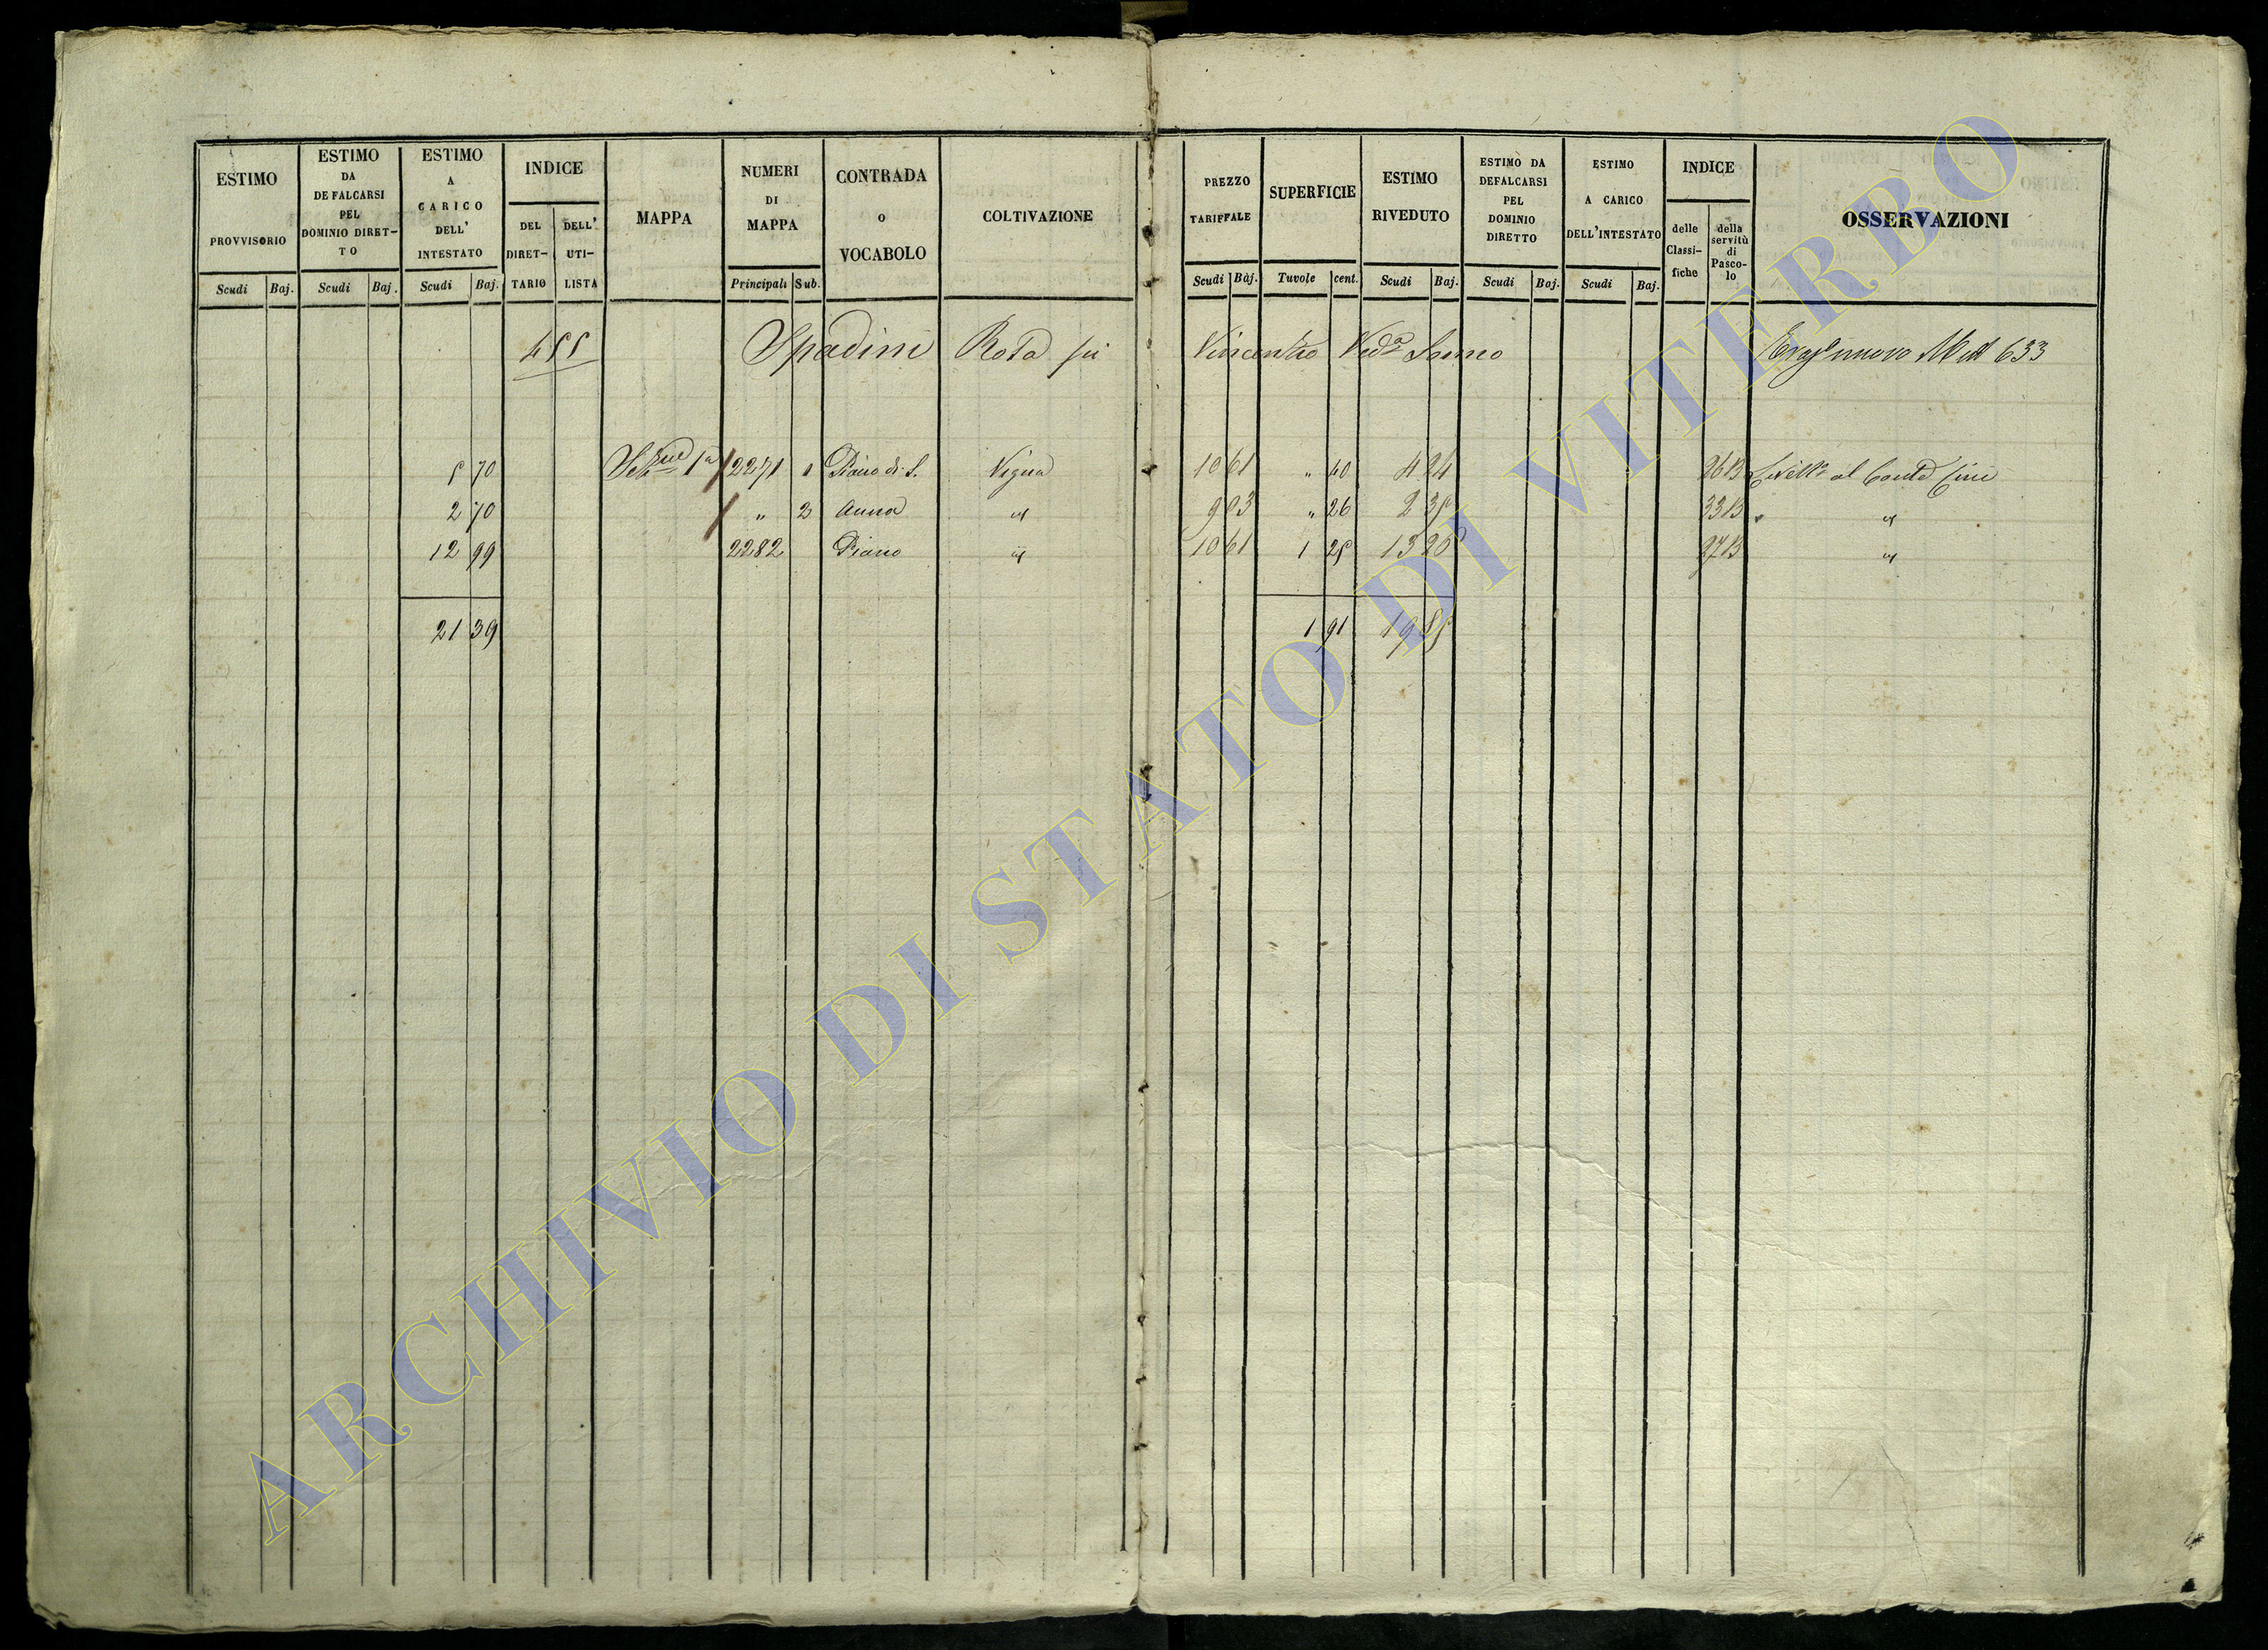 ESTIMO PROVVISORIO Scudi Baj.
ESTIMO DA DEFALCARSI PEL DOMINIO DIRET-TO Scudi Baj.
ESTIMO A CARICO DELL' INTESTATO Scudi Baj.
INDICE DEL DIRET-TARIO DELL' UTI-LISTA
MAPPA
NUMERI DI MAPPA Principali Sub.
CONTRADA o VOCABOLO
COLTIVAZIONE
PREZZO TARIFFALE Scudi Baj.
SUPERFICIE Tavole cent.
ESTIMO RIVEDUTO Scudi Baj.
ESTIMO DA DEFALCARSI PEL DOMINIO DIRETTO Scudi Baj.
ESTIMO A CARICO DELL'INTESTATO Scudi Baj.
INDICE delle Classi-fiche della servitù di Pasco-lo
OSSERVAZIONI
455 Spadini Rosa fu Vincenzo Ved.a 633
5 70 1a 2271 1 Piano di S. Vigna 10 61 " 40 4 24 26B
2 70 " 2 Anna id 9 03 " 26 2 35 33B id
12 99 2282 Piano id 10 61 1 25 13 26 27B id
21 39 1 91 19 85
ARCHIVIO DI STATO DI VITERBO